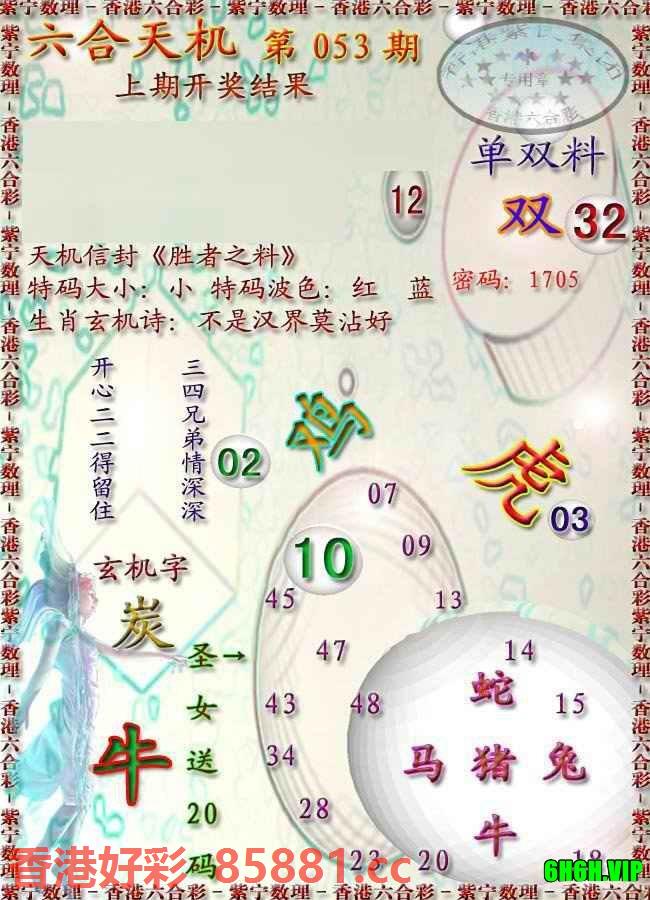 紫宁数理－香港六合彩－紫宁数理－香港六合彩－紫宁数理－香港六合彩－紫宁数理－香港六合彩
六合天机 第 053 期
上期开奖结果
专用章
香港六合彩
单双料
双 32
12
天机信封《胜者之料》
特码大小: 小 特码波色: 红 蓝
密码: 1705
生肖玄机诗: 不是汉界莫沾好
三四兄弟情深深
开心二二得留住
鸡
02
虎
03
07
10
09
玄机字
炭
45
13
圣女送20码
→
47
14
蛇
43
48
15
牛
34
马 猪 兔
28
牛
23
20
18
香港好彩 85881.cc
6H6H.VIP
紫宁数理－香港六合彩－紫宁数理－香港六合彩－紫宁数理－香港六合彩－紫宁数理－香港六合彩